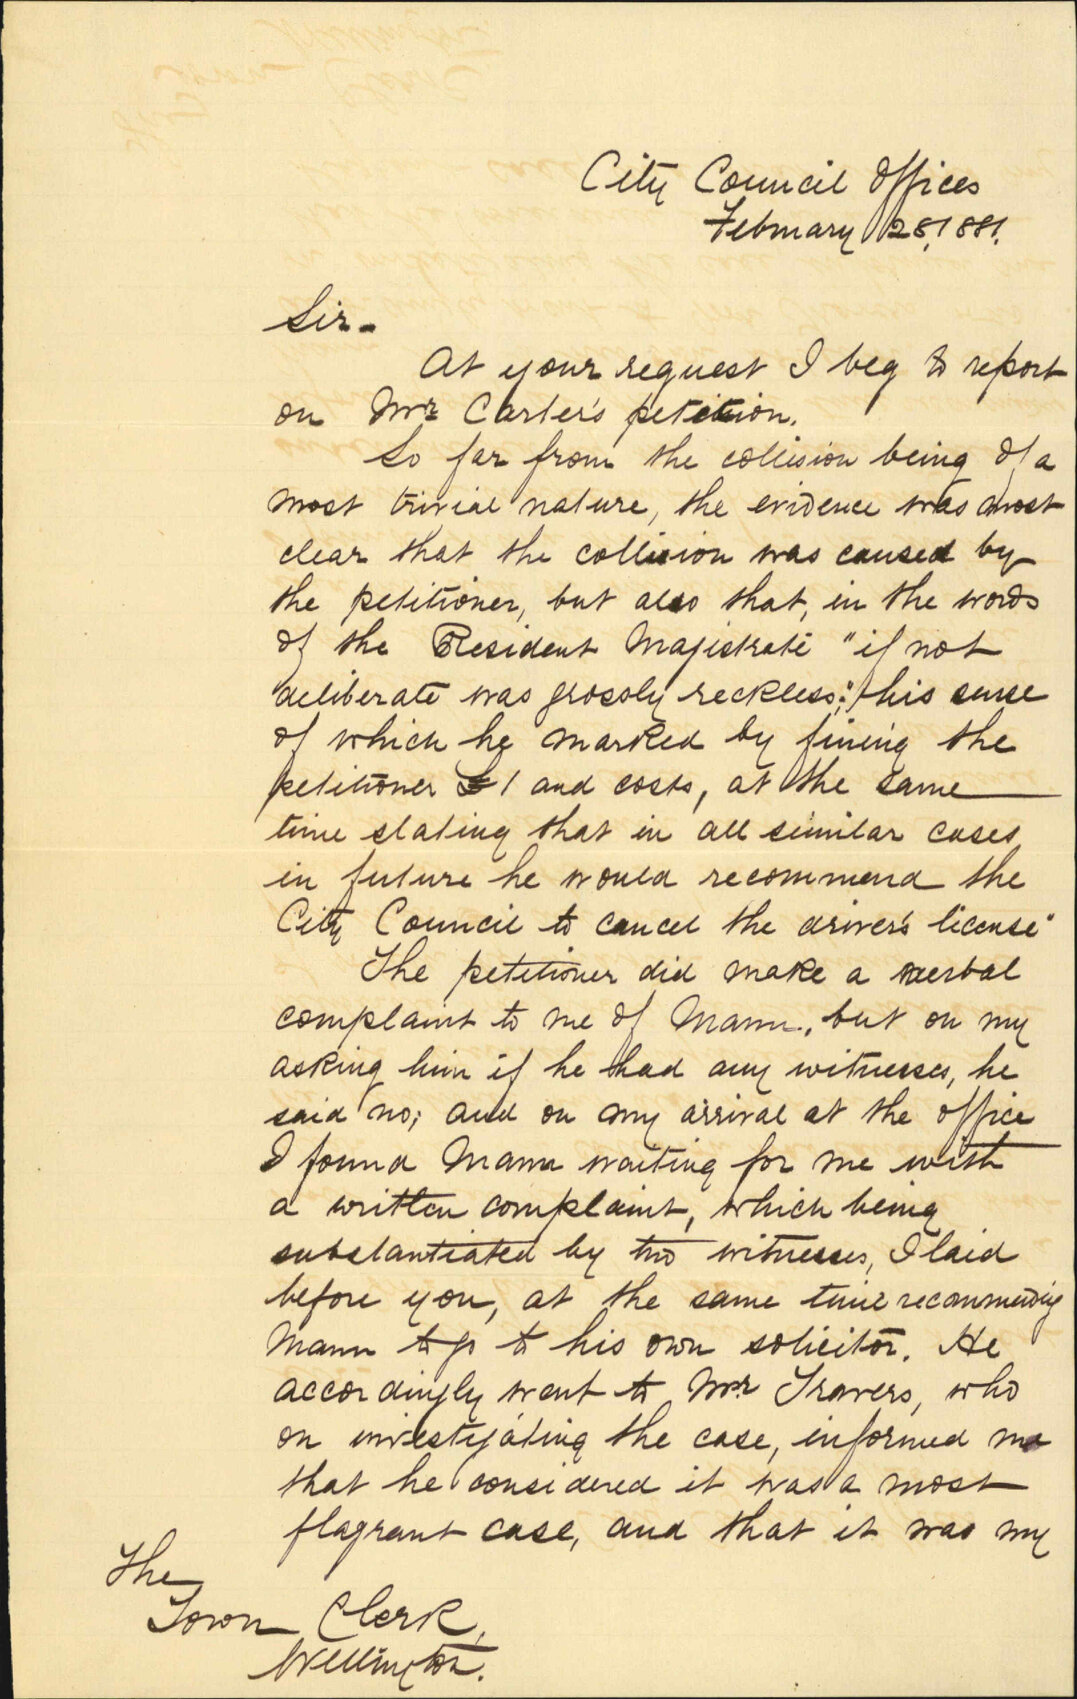 City Council Offices
February 28/88/.
Sir-
At your request I beg to report
on Mr Carter's petition.
So far from the collision being of a
most trivial nature, the evidence was most
clear that the collision was caused by
the petitioner, but also that, in the words
of the Resident Magistrate "if not
deliberate was grossly reckless;" his sense
of which he marked by fining the
petitioner £1 and costs, at the same
time stating that in all similar cases
in future he would recommend the
City Council to cancel the driver's license"
The petitioner did make a verbal
complaint to me of Mann, but on my
asking him if he had any witnesses, he
said no; and on my arrival at the office
I found Mann waiting for me with
a written complaint, which being
substantiated by two witnesses, I laid
before you, at the same time recommending
Mann to go to his own solicitor. He
accordingly went to Mr Travers, who
on investigating the case, informed me
that he considered it was a most
flagrant case, and that it was my
The
Town Clerk,
Wellington.